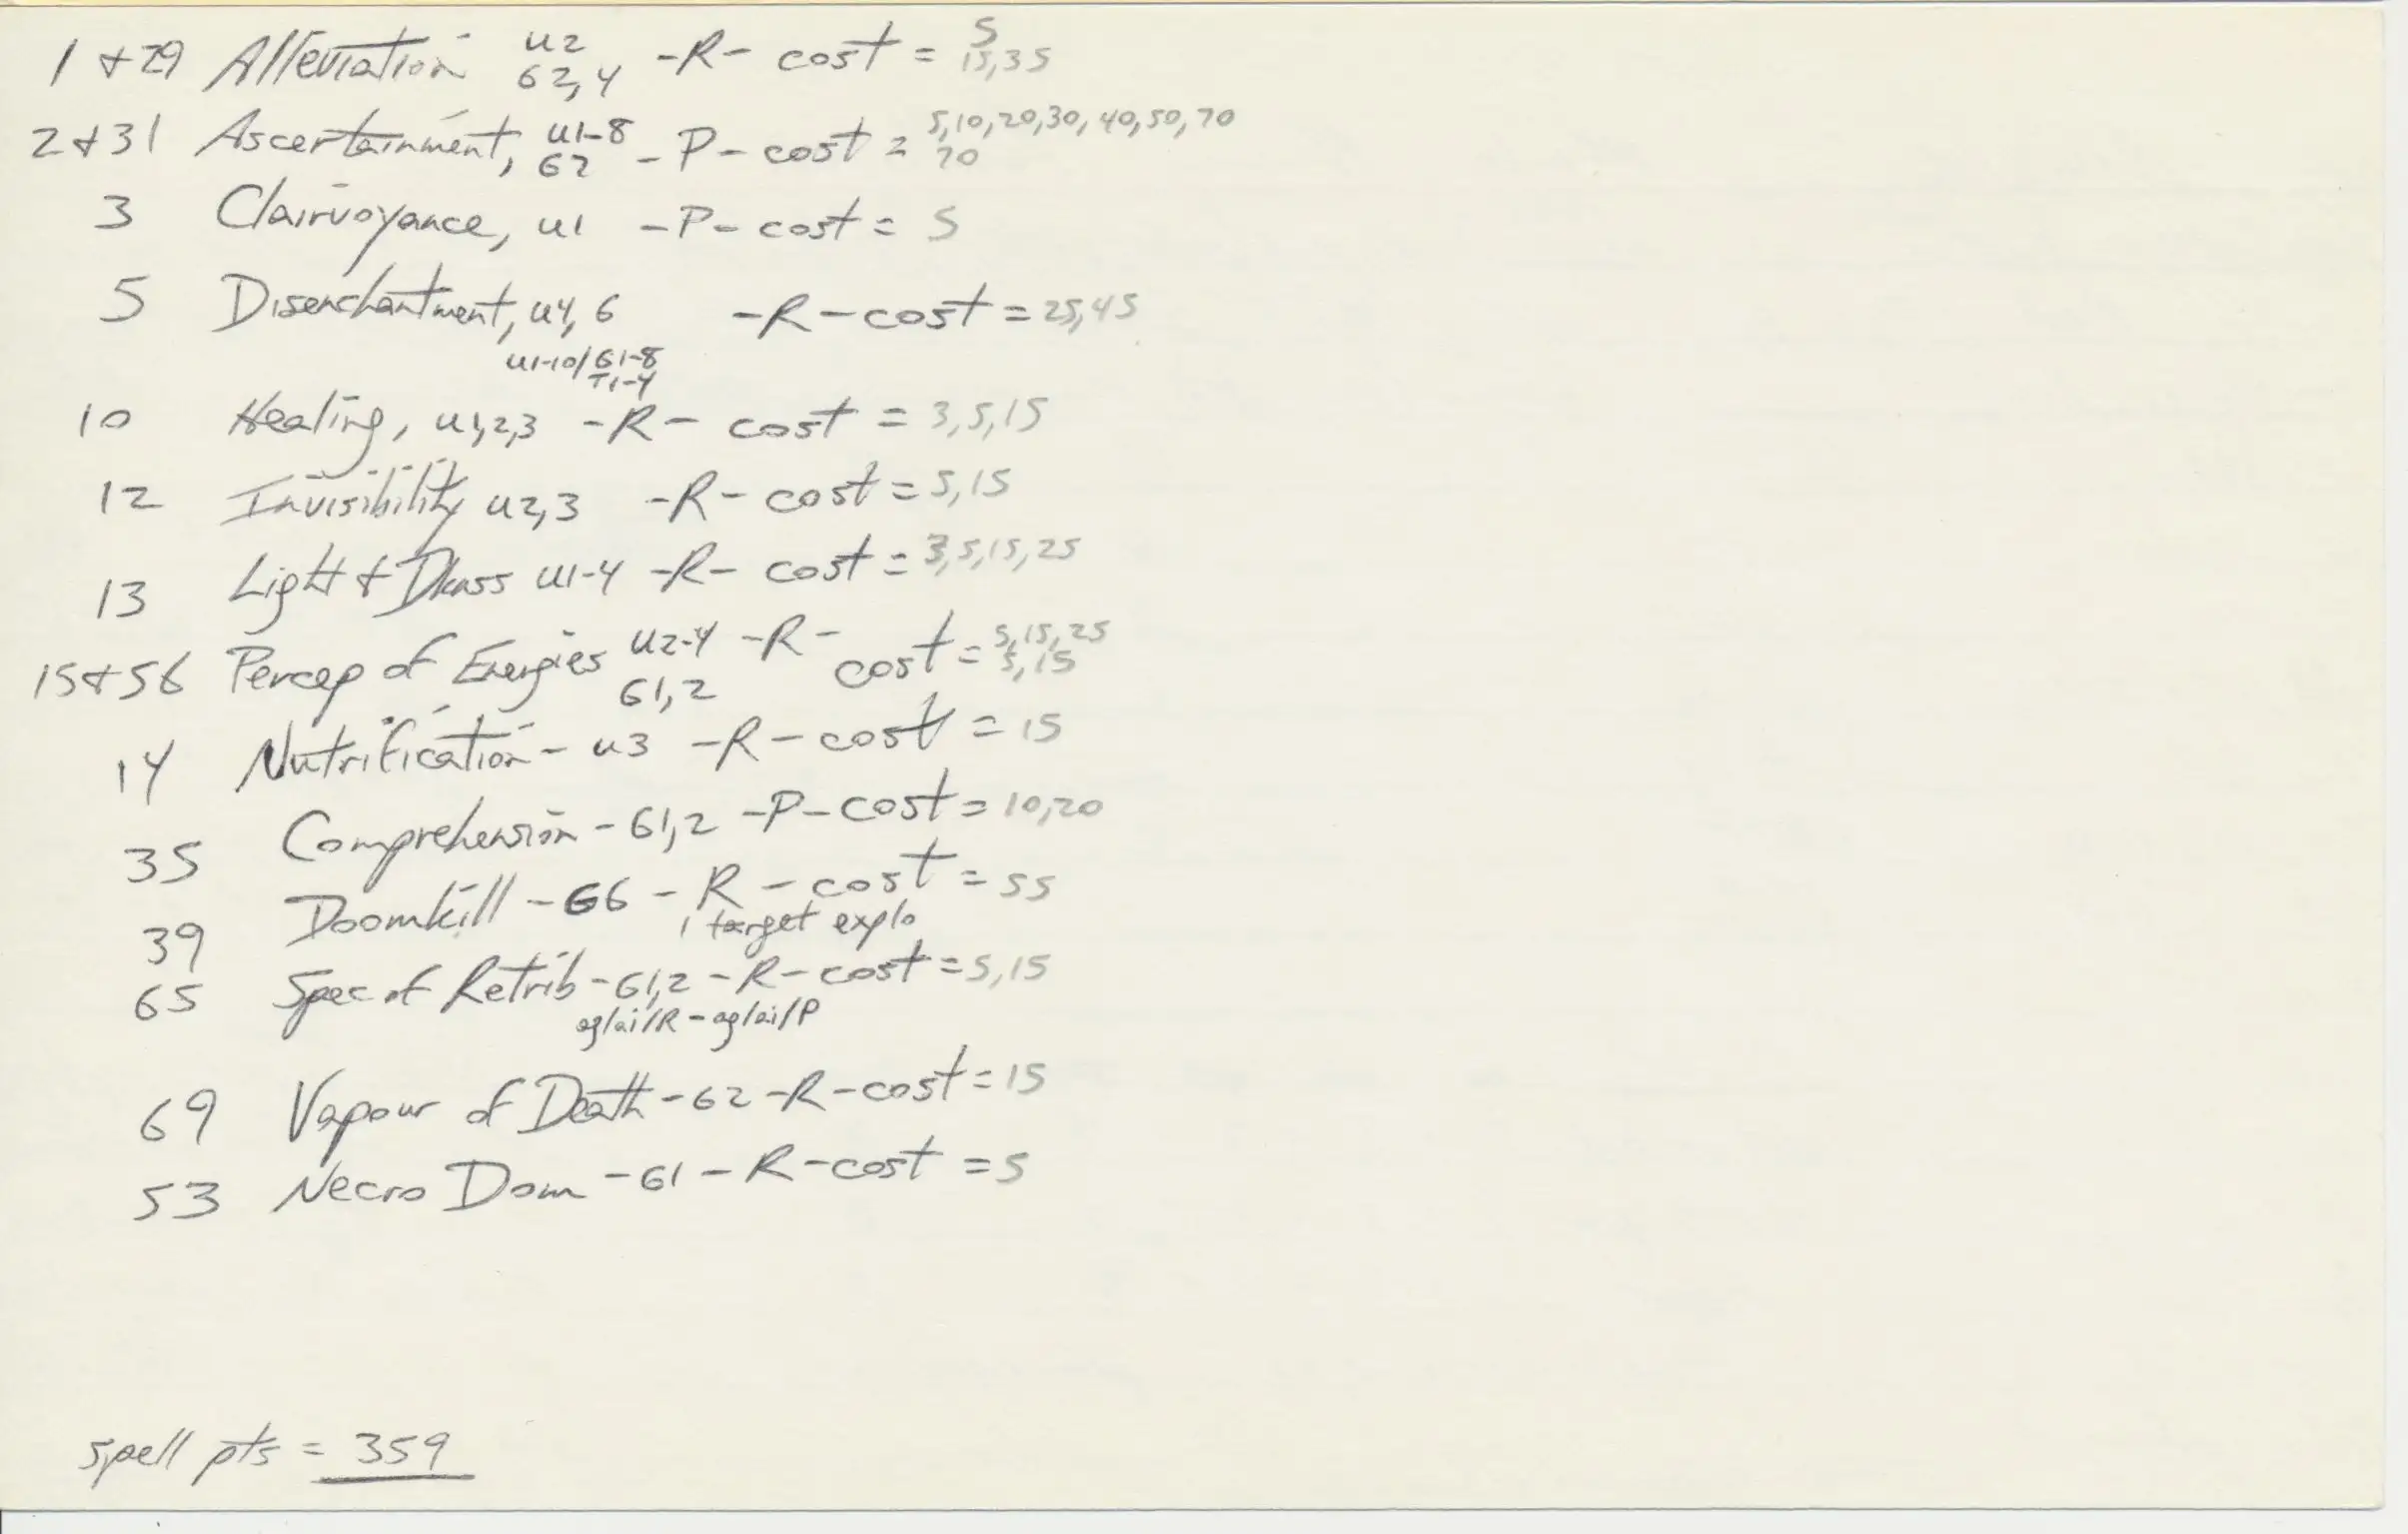 1 & 29 Alleviation u2 -R- cost = 5
G2,4 15,35
2 & 31 Ascertainment, u1-8 - P - cost = 5,10,20,30,40,50,70
G2 20
3 Clairvoyance, u1 - P - cost = 5
5 Disenchantment, u4, 6 - R - cost = 25,45
u1-10/G1-8
T1-4
10 Healing, u1,2,3 - R - cost = 3,5,15
12 Invisibility u2,3 - R - cost = 5,15
13 Light & Dkness u1-4 - R - cost = 3,5,15,25
15 & 56 Percep of Energies u2-4 - R - cost = 5,15,25
G1,2 5,15
14 Nutrification - u3 - R - cost = 15
35 Comprehension - G1,2 - P - cost = 10,20
39 Doomkill - G6 - R - cost = 55
1 target explo
65 Spec of Retrib - G1,2 - R - cost = 5,15
ag/ai/R - ag/ai/P
69 Vapour of Death - G2 - R - cost = 15
53 Necro Dom - G1 - R - cost = 5
spell pts = 359